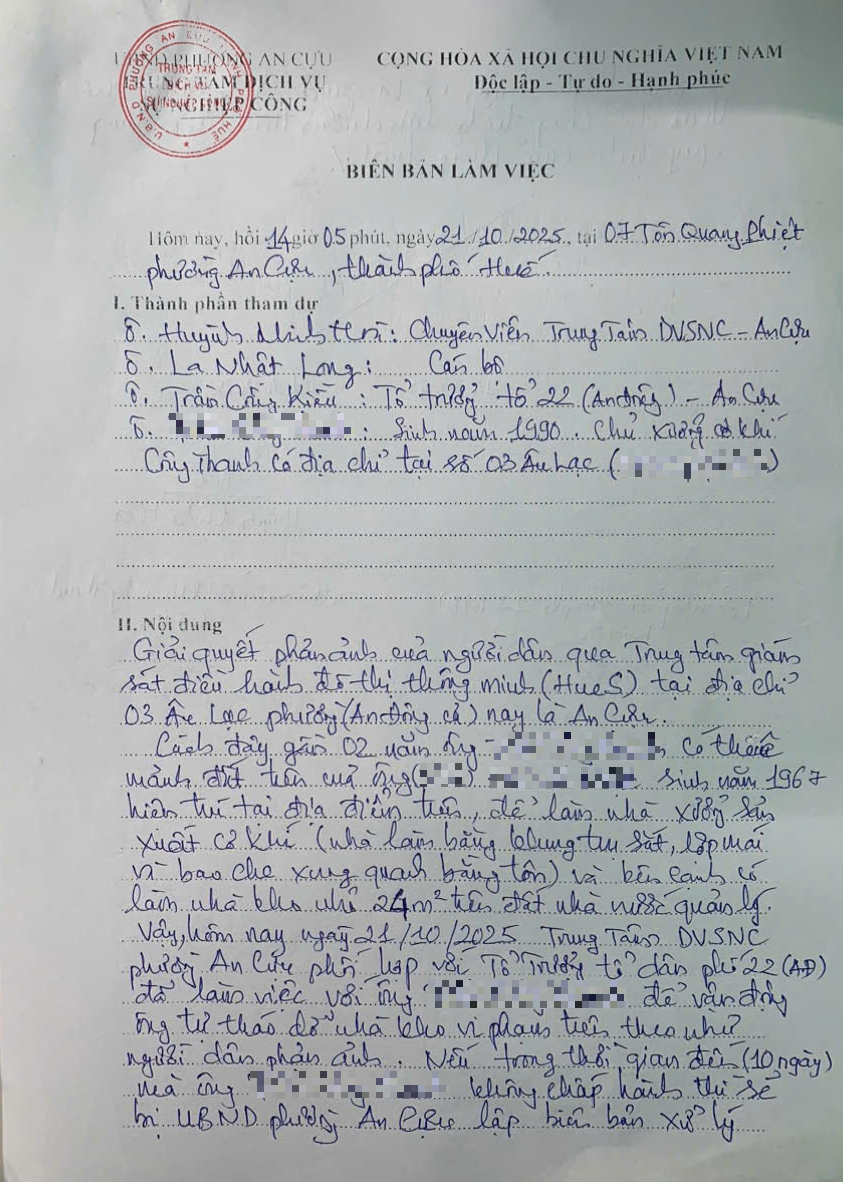 UBND PHƯỜNG AN CỰU
TRUNG TÂM DỊCH VỤ
SỰ NGHIỆP CÔNG
CỘNG HÒA XÃ HỘI CHỦ NGHĨA VIỆT NAM
Độc lập - Tự do - Hạnh phúc
BIÊN BẢN LÀM VIỆC
Hôm nay, hồi 14 giờ 05 phút, ngày 21/10/2025, tại 07 Tôn Quang Phiệt
phường An Cựu, thành phố Huế.
I. Thành phần tham dự
Ô. Huỳnh Minh : Chuyên Viên Trung Tâm DVSNC - An Cựu
Ô. La Nhật Long : Cán bộ
Ô. Trần Công Kiều : Tổ trưởng tổ 22 (An Đông) - An Cựu
Ô. : Sinh năm 1990. Chủ xưởng cơ khí
Công Thanh có địa chỉ tại số 03 Âu Lạc ( )
II. Nội dung
Giải quyết phản ánh của người dân qua Trung tâm giám
sát điều hành đô thị thông minh (HueS) tại địa chỉ
03 Âu Lạc phường (An Đông cũ) nay là An Cựu.
Cách đây gần 02 năm ông có thuê
mảnh đất trên của ông ( ) Sinh năm 1967
hiện trú tại địa điểm trên, để làm nhà xưởng sản
xuất cơ khí (nhà làm bằng khung trụ sắt, lợp mái
và bao che xung quanh bằng tôn) và bên cạnh có
làm nhà kho nhỏ 24m² trên đất nhà nước quản lý.
Vậy, hôm nay ngày 21/10/2025 Trung Tâm DVSNC
phường An Cựu phối hợp với Tổ Trưởng tổ dân phố 22 (AĐ)
để làm việc với ông để vận động
ông tự tháo dỡ nhà kho vi phạm trên theo như
người dân phản ánh. Nếu trong thời gian đến (10 ngày)
mà ông không chấp hành thì sẽ
bị UBND phường An Cựu lập biên bản xử lý